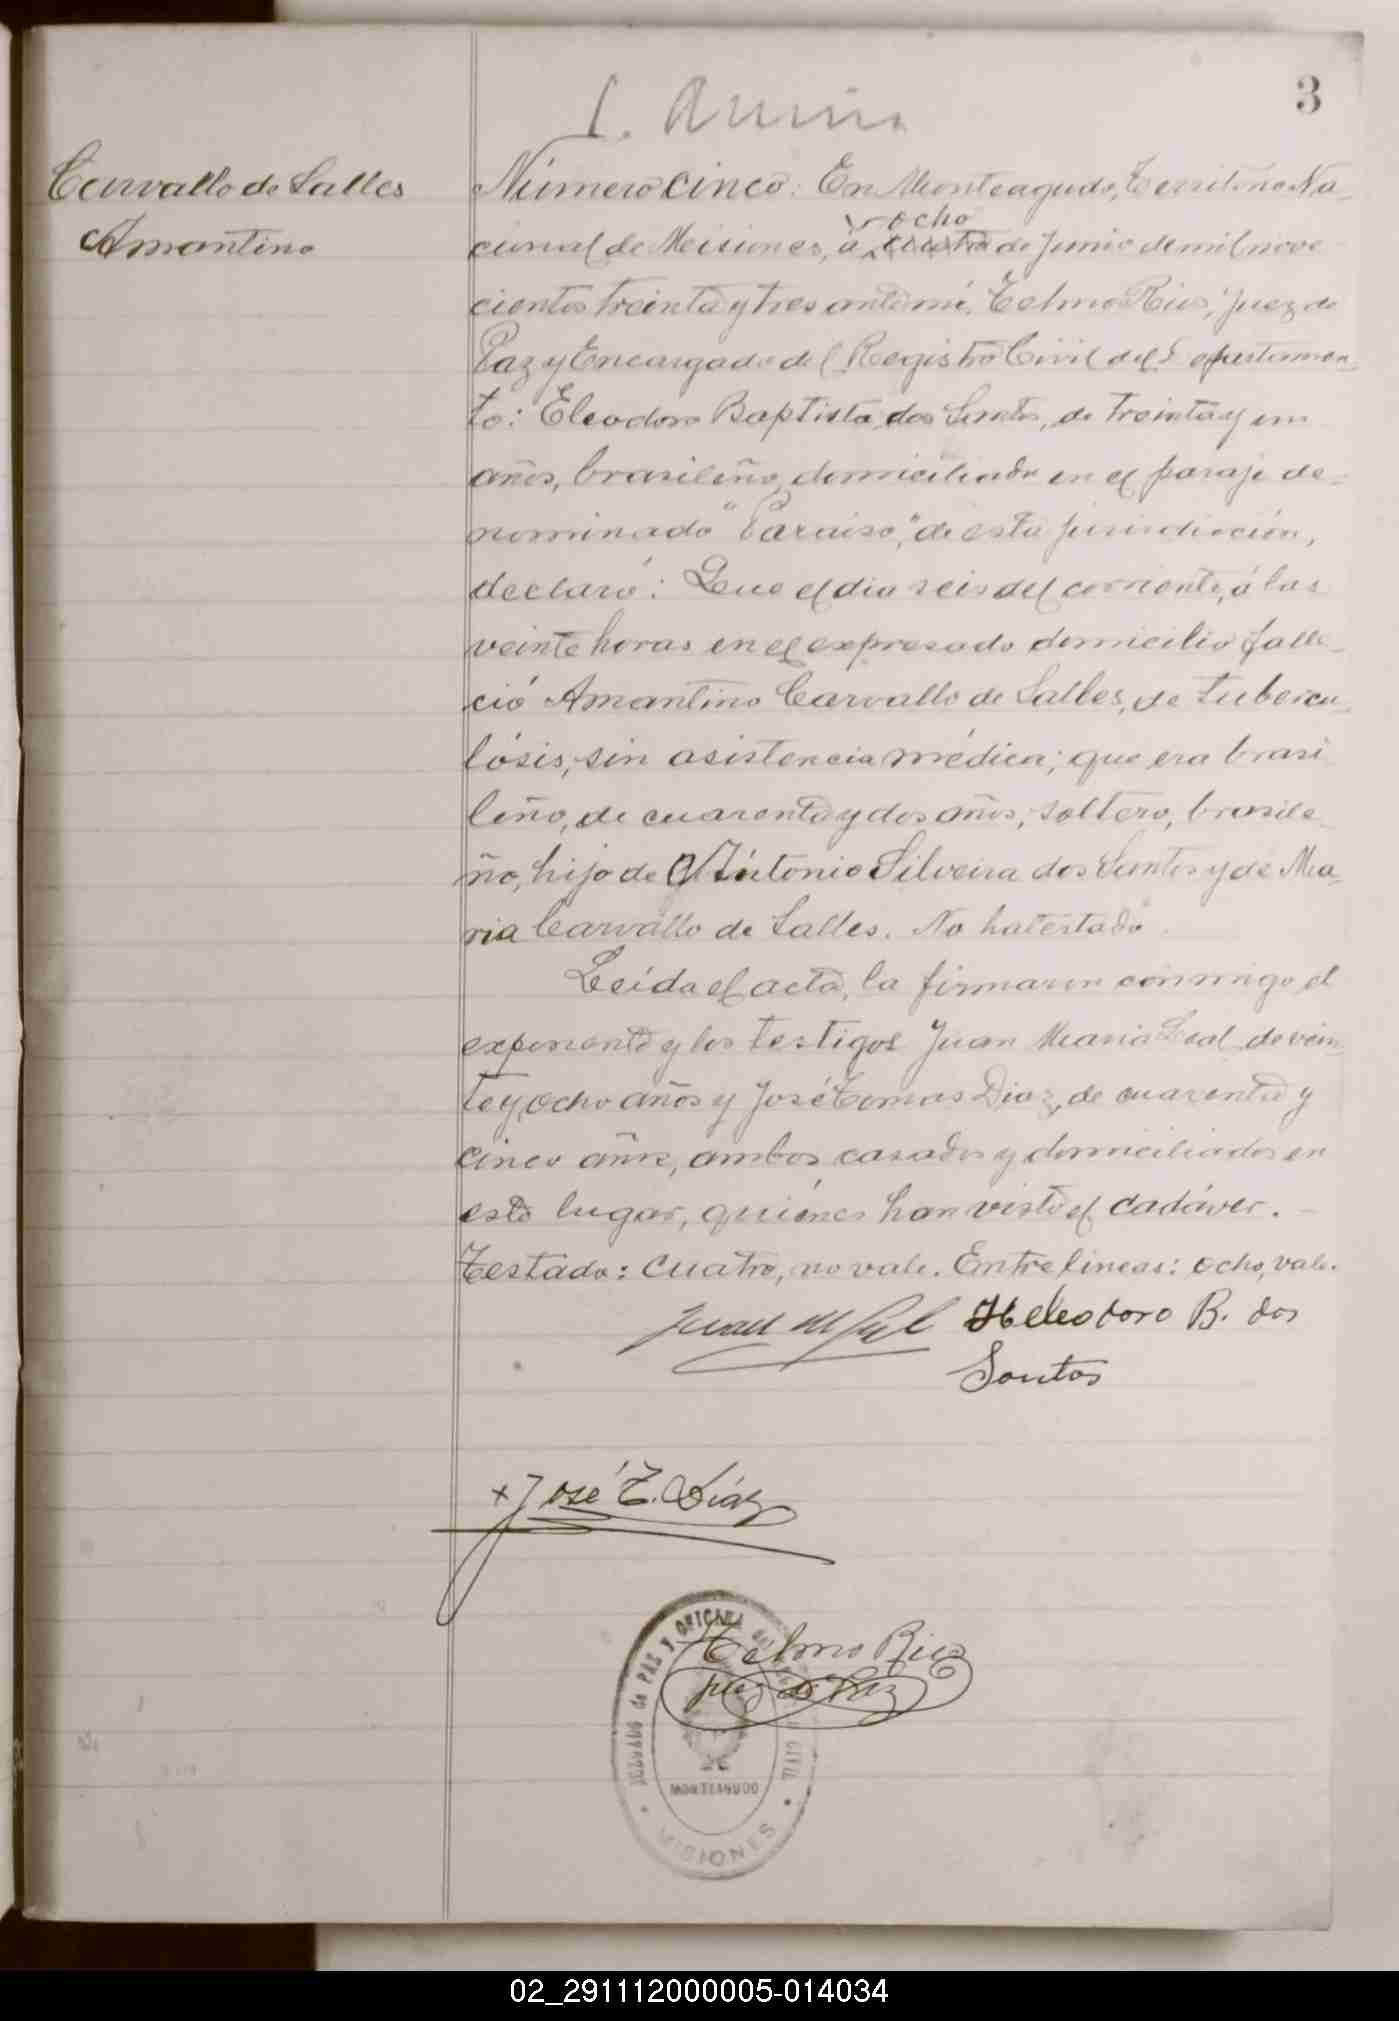 3
Carvallo de Salles
Amantino
Número cinco: En Monteagudo, Territorio Na-
cional de Misiones, a ocho
cuatro de Junio de mil nove-
cientos treinta y tres ante mí, Telmo Rios, Juez de
Paz y Encargado del Registro Civil del Departamen-
to: Eleodoro Baptista dos Santos, de treinta y un
años, brasileño, domiciliado en el paraje de-
nominado "Paraiso," de esta jurisdicción,
declaró: Que el dia seis del corriente, á las
veinte horas en el expresado domicilio falle-
ció Amantino Carvallo de Salles, de tubercu-
lósis, sin asistencia médica; que era brasi
leño, de cuarenta y dos años, soltero, brasile-
ño, hijo de António Silveira dos Santos y de Ma-
ria Carvallo de Salles. No ha testado.
Leída el acta, la firmaron conmigo el
exponente y los testigos Juan Maria Leal de vein-
te y ocho años y José Tomas Diaz, de cuarenta y
cinco años, ambos casados y domiciliados en
esto lugar, quiénes han visto el cadáver. -
Testado: cuatro, no vale. Entre lineas: ocho, vale.
Juan M Leal Heleodoro B. dos
Santos
x José T. Díaz
Telmo Rios
Juez de Paz
JUZGADO de PAZ Y OFICINA del REGISTRO CIVIL
MONTEAGUDO
MISIONES
02_291112000005-014034